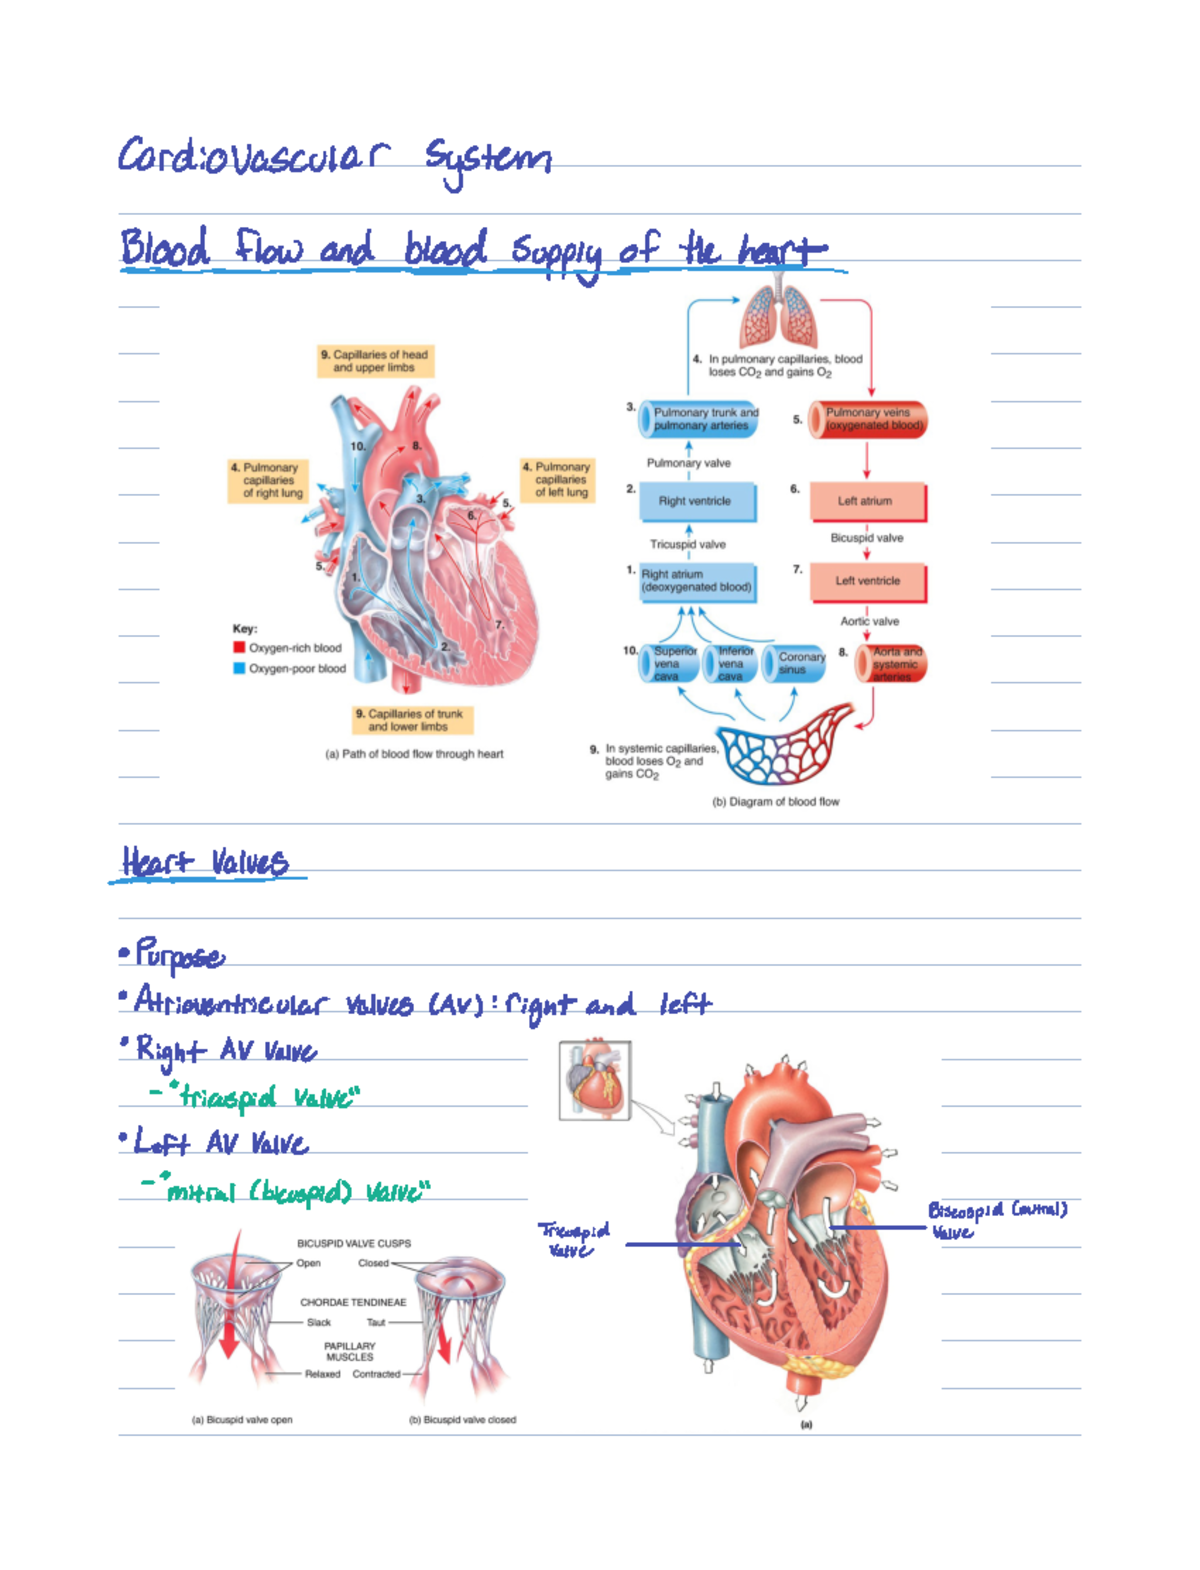 Cardiovascular System
Blood flow and blood supply of the heart
9. Capillaries of head
and upper limbs
4. Pulmonary
capillaries
of right lung
4. Pulmonary
capillaries
of left lung
10.
8.
3.
5.
6.
5.
1.
7.
2.
Key:
Oxygen-rich blood
Oxygen-poor blood
9. Capillaries of trunk
and lower limbs
(a) Path of blood flow through heart
4. In pulmonary capillaries, blood
loses CO2 and gains O2
3. Pulmonary trunk and
pulmonary arteries
5. Pulmonary veins
(oxygenated blood)
Pulmonary valve
2. Right ventricle
6. Left atrium
Tricuspid valve
Bicuspid valve
1. Right atrium
(deoxygenated blood)
7. Left ventricle
Aortic valve
10. Superior
vena
cava
Inferior
vena
cava
Coronary
sinus
8. Aorta and
systemic
arteries
9. In systemic capillaries,
blood loses O2 and
gains CO2
(b) Diagram of blood flow
Heart Valves
• Purpose
• Atrioventricular valves (AV): right and left
• Right AV Valve
- "tricuspid Valve"
• Left AV Valve
- "mitral (bicuspid) Valve"
Tricuspid
Valve
Biscuspid (mitral)
Valve
BICUSPID VALVE CUSPS
Open Closed
CHORDAE TENDINEAE
Slack Taut
PAPILLARY
MUSCLES
Relaxed Contracted
(a) Bicuspid valve open
(b) Bicuspid valve closed
(a)